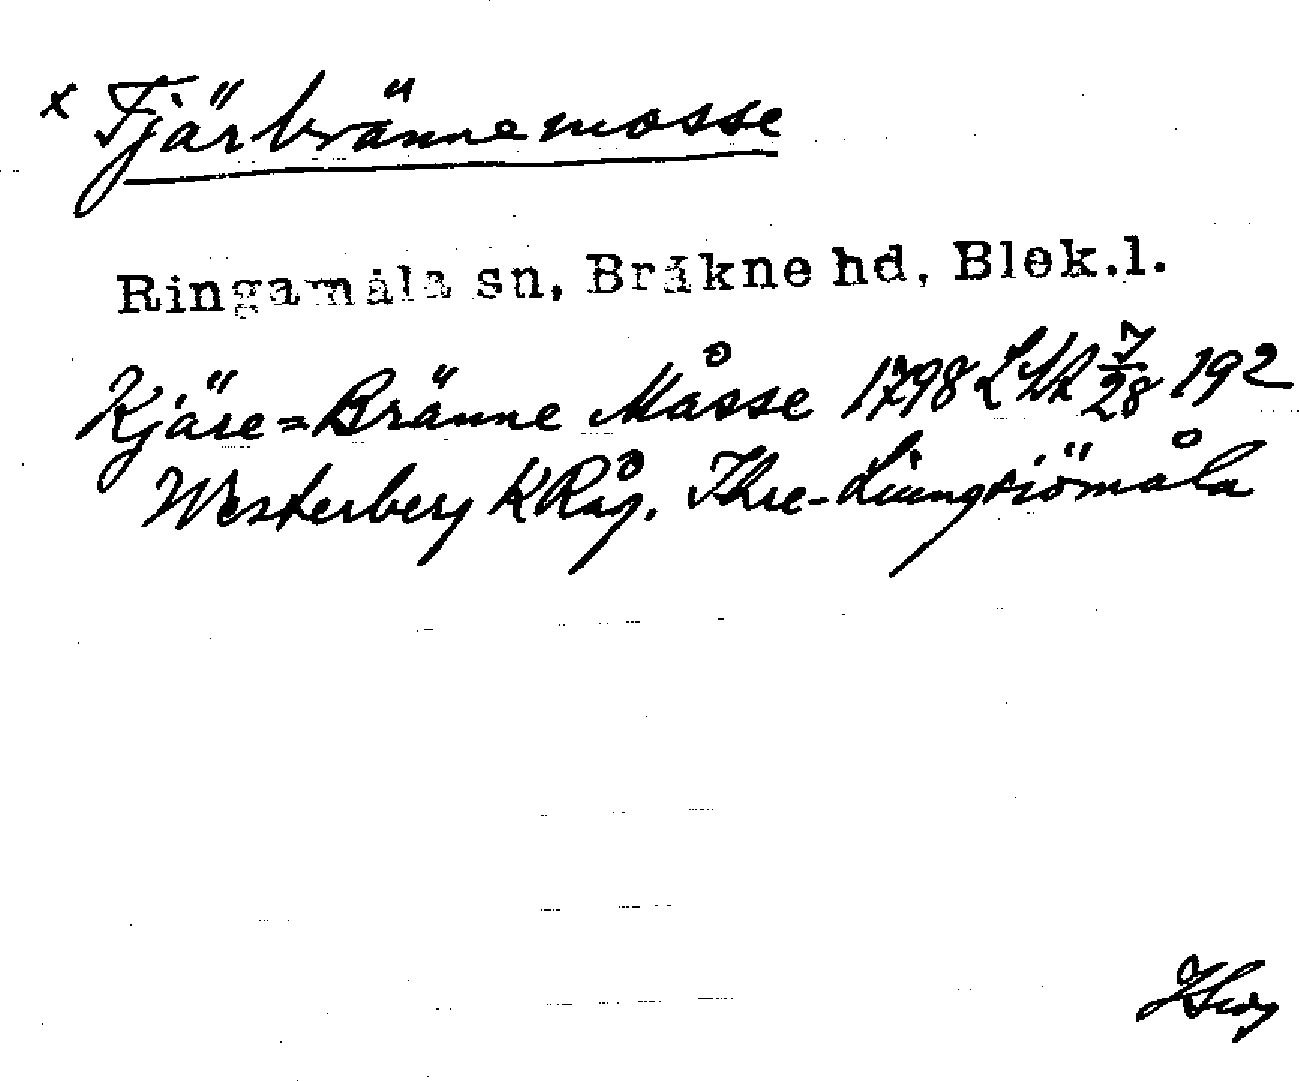 x Tjärbrännemosse
Ringamåla sn, Bräkne hd, Blek.l.
Kjäre=Bränne Måsse 1798 LSA 7/28 192
Westerberg KRåg. Ihre-Liungsiömåla